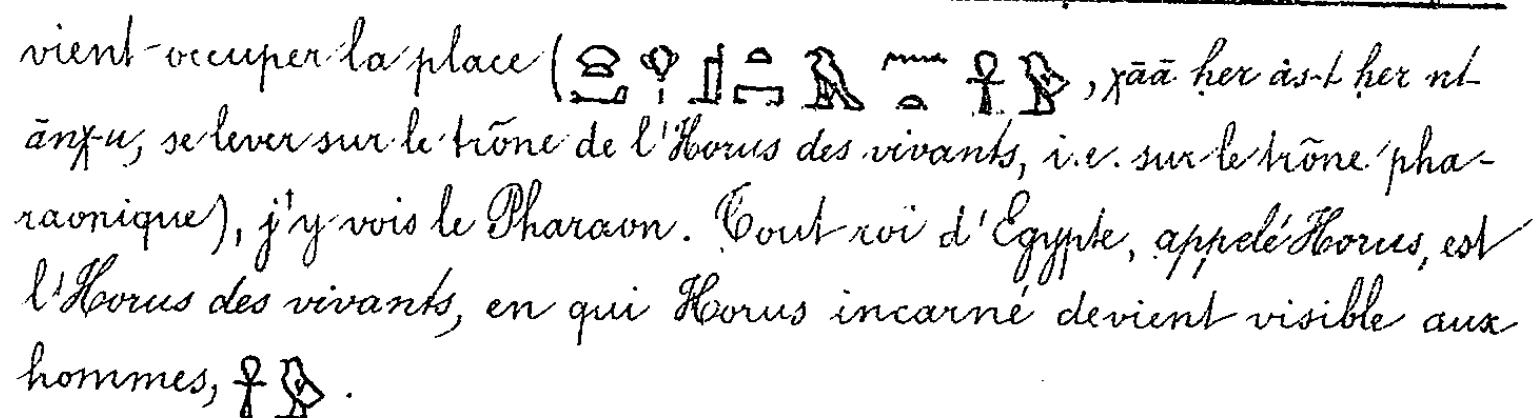 vient occuper la place (𓈍𓂝𓁷𓏤𓊨𓏏𓉐𓅃𓈖𓏏𓋹, χāā ḥer ȧs-t ḥer nt
ānχ-u, se lever sur le trône de l'Horus des vivants, i.e. sur le trône pha-
raonique), j'y vois le Pharaon. Tout roi d'Égypte, appelé Horus, est
l'Horus des vivants, en qui Horus incarné devient visible aux
hommes, 𓋹.